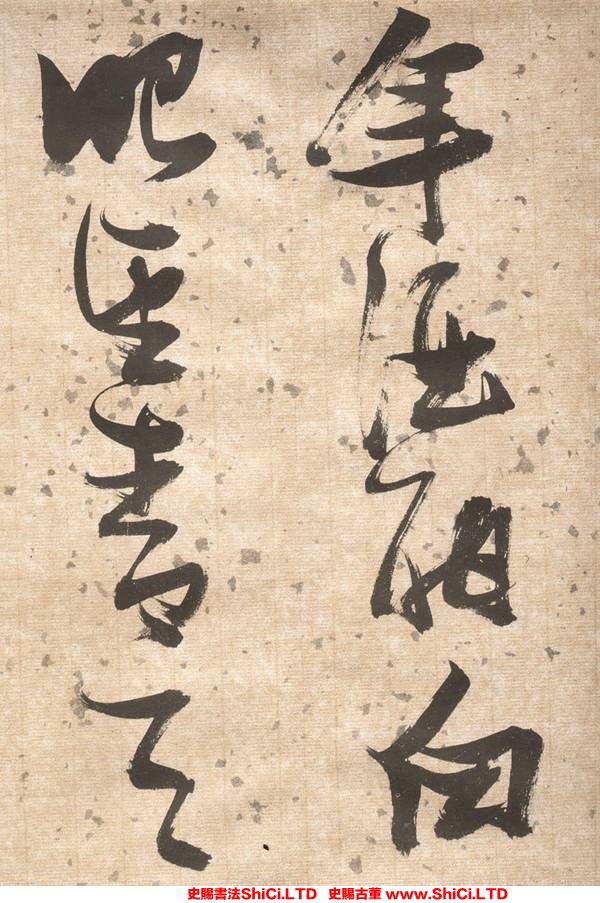 年白
眼望青天
史賜書法ShiCi.LTD 史賜古董 www.ShiCi.LTD